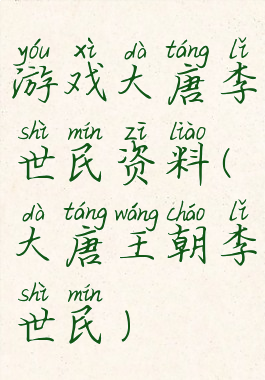 yóu xì dà táng lǐ
游戏大唐李
shì mín zī liào
世民资料(
dà táng wáng cháo lǐ
大唐王朝李
shì mín
世民)